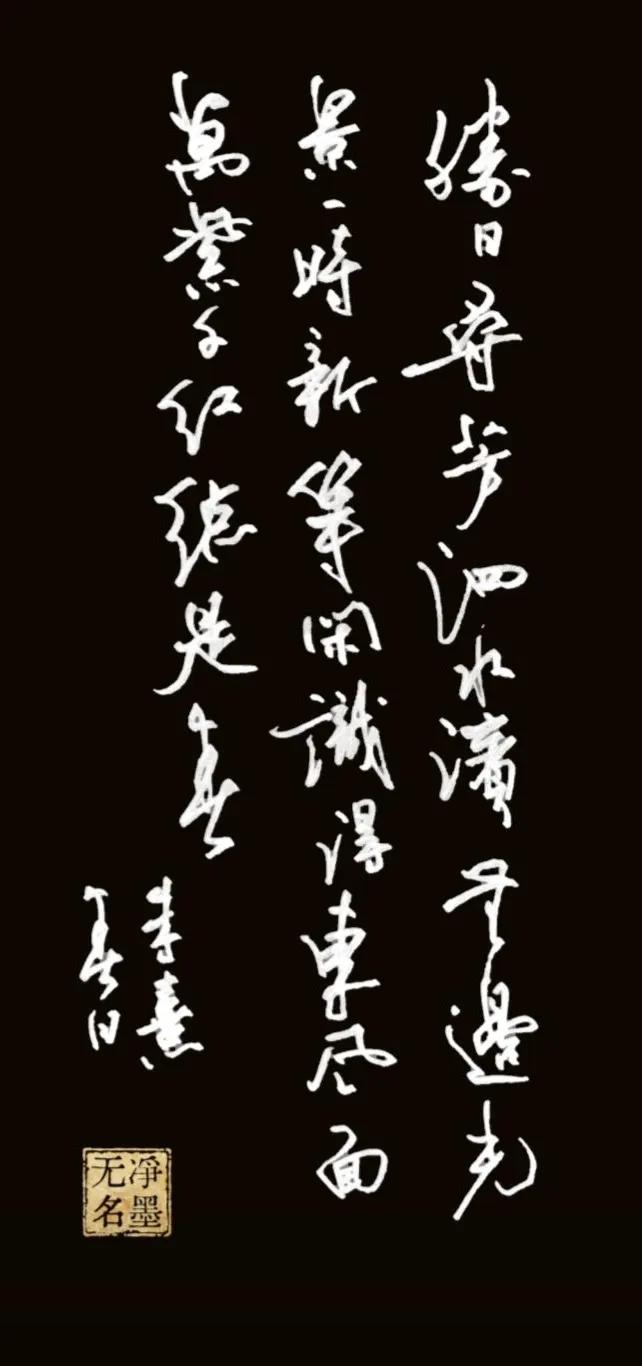 勝日尋芳泗水濱無邊光
景一時新等閑識得東風面
萬紫千紅總是春
朱熹
春日
淨墨
无名